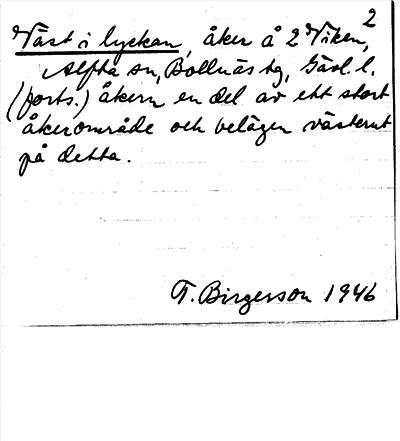 2
Väst i lyckan, åker å 2 Viken,
Alfta sn, Bollnäs tg, Gävl. l.
(forts.) åkern en del av ett stort
åkerområde och belägen västerut
på detta.
T. Birgerson 1946